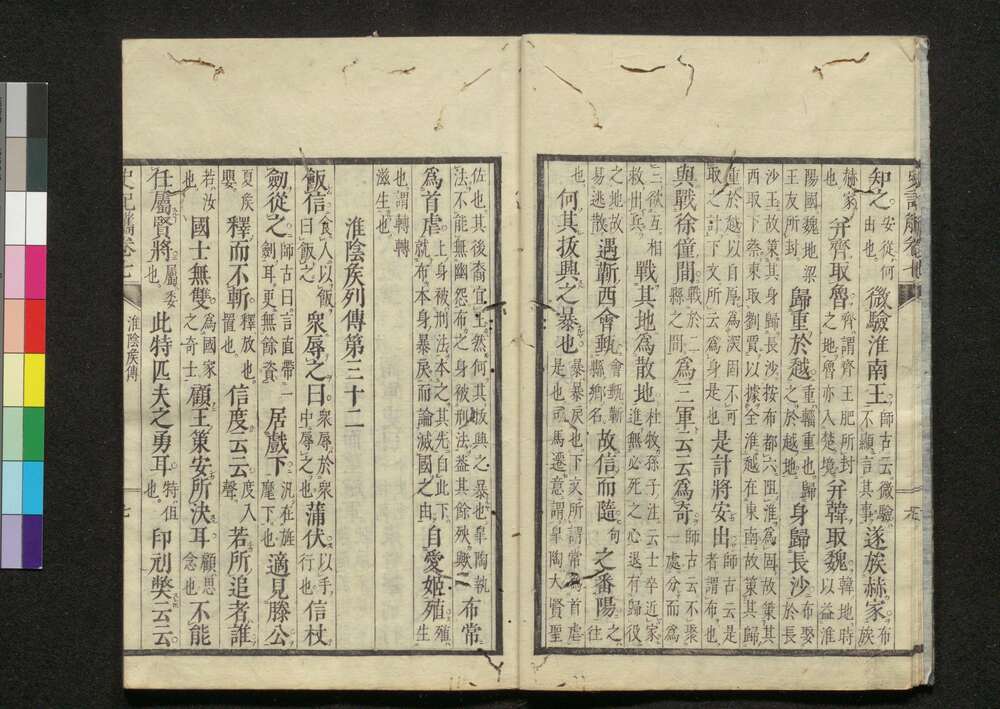 史記觿卷七
知之安從何由也微驗淮南王師古云微驗不顯言其事遂族赫家布族
赫家也幷齊取魯齊謂齊王肥所封之地魯亦入楚境幷韓取魏韓地時以益淮
陽國魏地梁王友所封歸重於越重輜重也歸之於越地身歸長沙布娶於長
沙王故策其身歸長沙按布都六阻淮爲固故策其西取下蔡東取劉賈以據全淮越在東南故策其歸
重於越以自厚爲深固不可取之計下文所云爲身是也是計將安出師古云是者謂布也
與戰徐僮間戰於二縣之間爲三軍云云爲奇師古云不聚一處分而爲
三欲互相救出兵戰其地爲散地杜牧孫子注云士卒近家進無必死之心退有歸役
之地故易逃散遇蘄西會甀會甀蘄縣鄉名故信而隨句之番陽之往
也何其拔興之暴也暴暴戾也下文所謂常爲首虐是也司馬遷意謂皐陶大賢聖
佐也其後裔宜王然何其拔興之暴也皐陶執法不能無幽怨布之身被刑法蓋其餘殃歟布常
爲首虐上身被刑法本之其先自此下就布本身暴戾而論滅國之由自愛姬殖殖生
也謂轉轉滋生也
淮陰矦列傳第三十二
飯信食人以飯曰飯之衆辱之曰衆辱於衆中辱之也蒲伏以手行也信杖
劒從之師古曰言直帶一劒耳更無餘資居戲下汎在旌麾下也適見滕公
夏矦嬰釋而不斬釋放也置也信度云云度入聲若所追者誰
若汝也國士無雙爲國家之奇士顧王策安所決耳顧思念也不能
任屬賢將屬委也此特匹夫之勇耳特但也印刓獘云云
史記觿卷七
淮陰矦傳
七